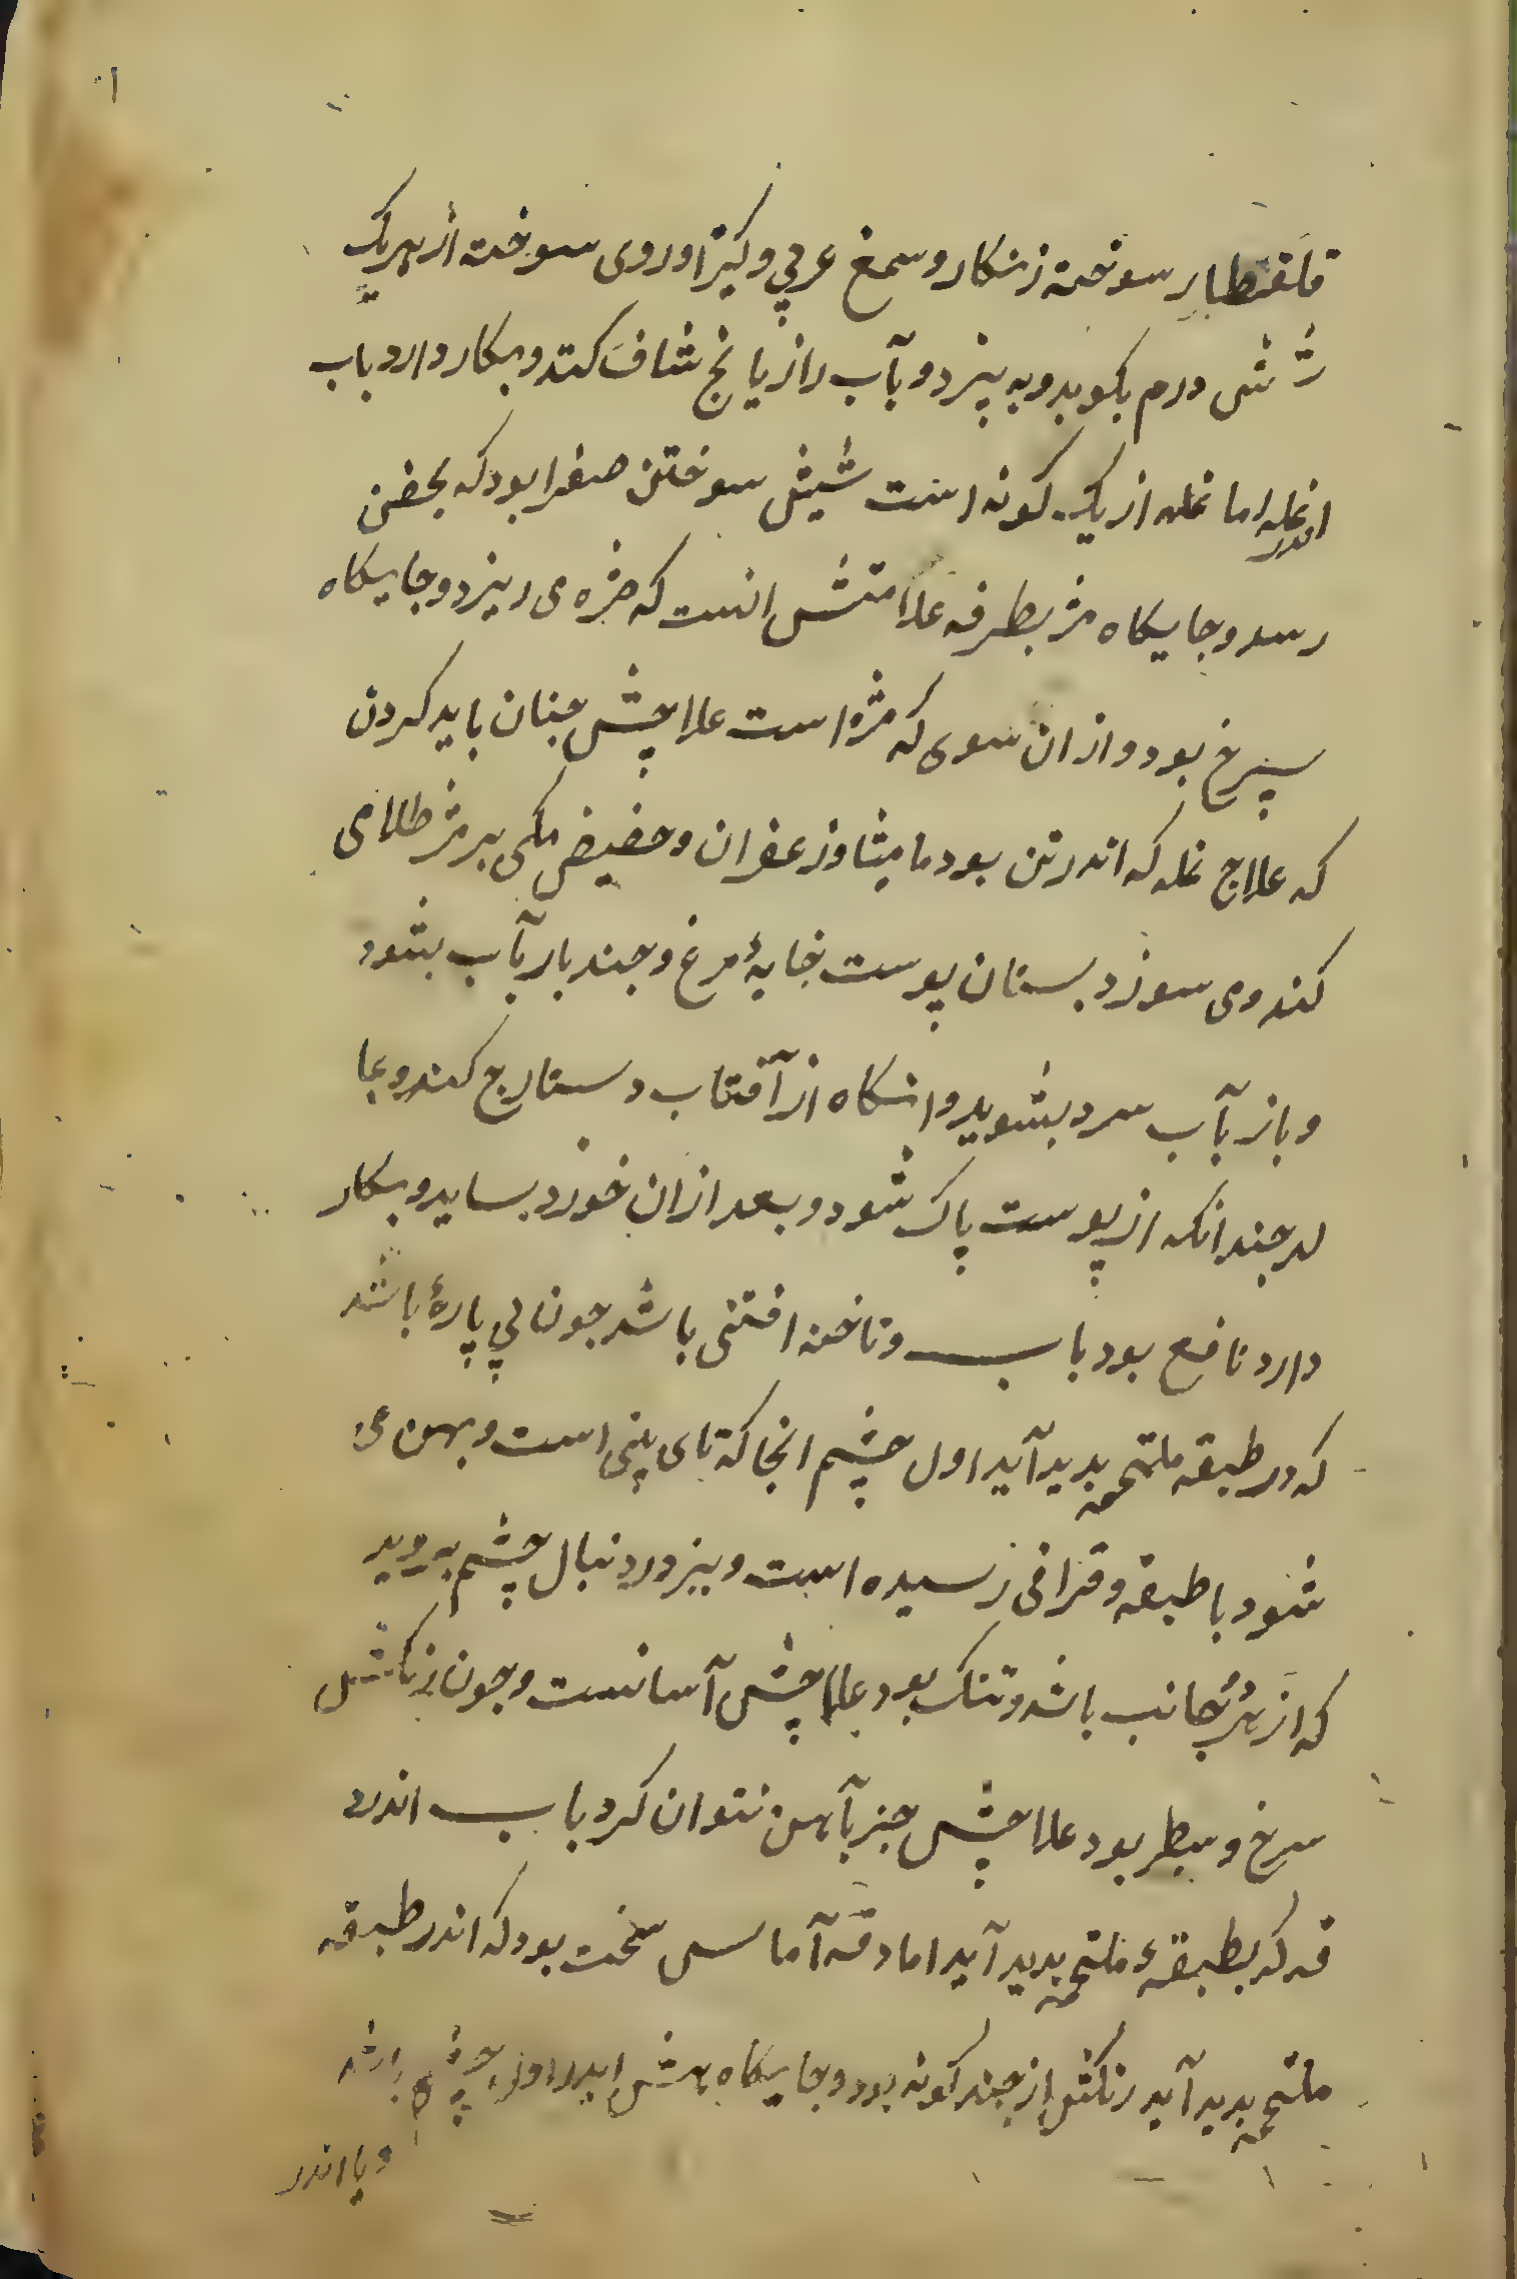 قلقطار سوخته زنکار و سمغ عربی و کتیرا و روی سوخته از هر یک
شش درم بکوبد و به پیزد و بآب رازیانج شاف کند و بکار دارد باب
اندر نمله اما نمله از یک کونه است سببش سوختن صفرا بود که بجفن
رسد و جایکاه مژ بطرفه علامتش انست که مژه می ریزد و جایکاه
سرخ بود و ازان سوی که مژه است علاجش جنان باید کردن
که علاج نمله که اندر تن بود مامیثا و زعفران و حضیض مکی بر مژ طلا می
کند و می سوزد بستان پوست خایهٔ مرغ و جند بار بآب بشود
و باز بآب سرد بشوید و انکاه از آفتاب دستارج کند و بما
لد جندانکه از پوست پاک شود و بعد ازان خورد بساید و بکار
دارد نافع بود باب و ناخنه افتنی باشد جون پی پارهٔ باشد
که در طبقه ملتحمه بدید آید اول چشم انجا که تای بینی است و پهن می
شود با طبقه و قرانی رسیده است و نیز در دنبال چشم به روید
که از هر دو جانب باشد و تنک بود علاجش آسانست و جون رنکش
سرخ و سطبر بود علاجش جز بآهن نتوان کرد باب اندر د
قه که بطبقهٔ ملتحمه بدید آید اما دقه آماسی سخت بود که اندر طبقه
ملتحمه بدید آید رنکش از جند کونه بود و جایکاهش اندر اول چشم باشد
و یا اندر